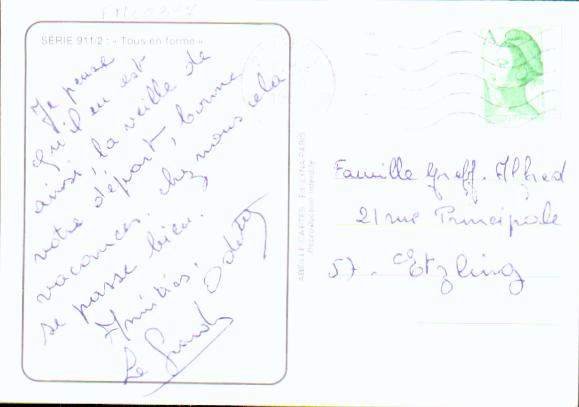 SÉRIE 911/2 : « Tous en forme »
Je pense
qu'il en est
ainsi, la veille de
votre départ, bonne
vacances. chez nous cela
se passe bien.
Amitiés. Odette
Le Grand
ABEILLE CARTES . Éd. LYNA-PARIS
Reproduction interdite
Famille Greff. Alfred
21 rue Principale
57. Etzling